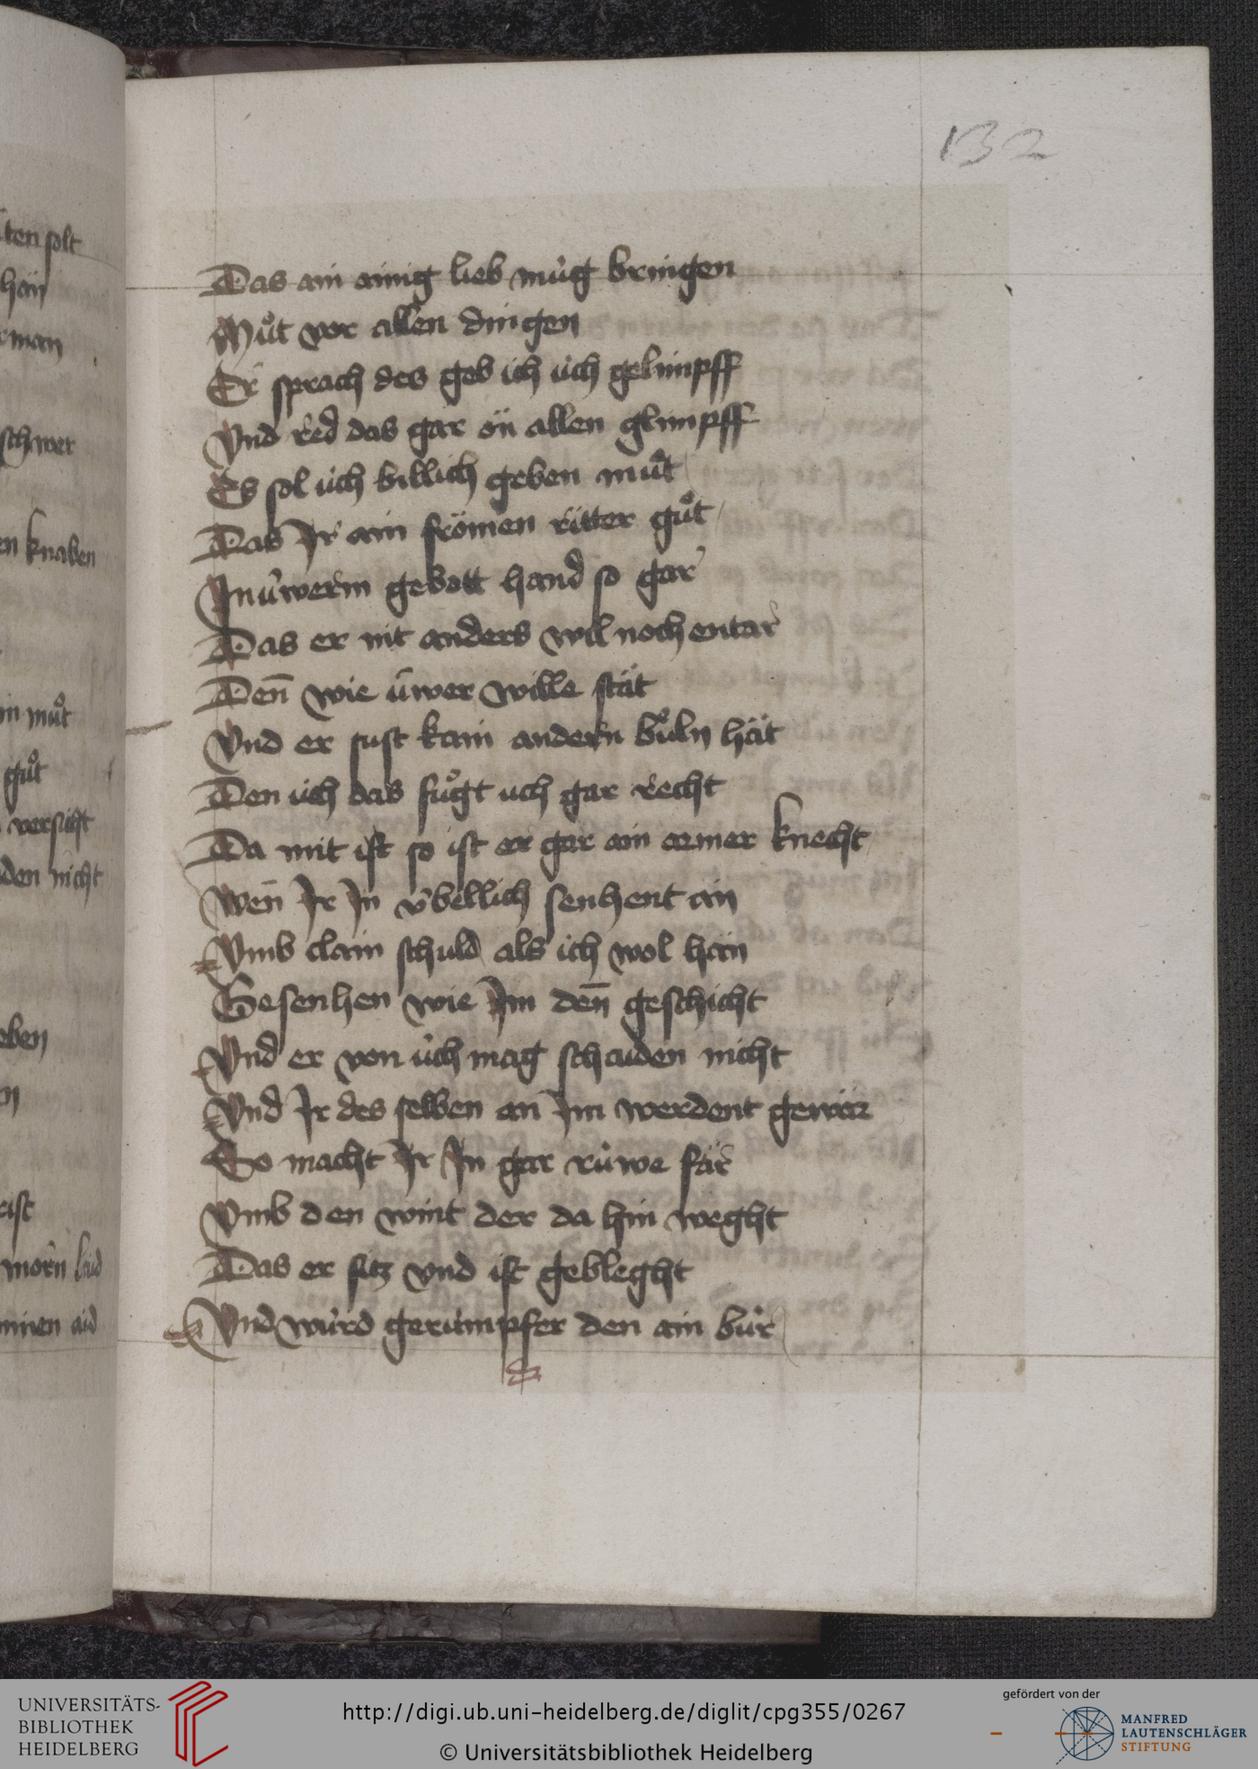 132
Das ain ainig lieb mu̇g bringen
Mu̇t vor allen dingen
Er sprach des geb ich u̇ch gelimpff
Vnd red das gar ön allen glimpff
Es sol u̇ch billich geben mut
Das Ir ain frömen ritter gůt
In u̇werm gebott hand so gar
Das er nit anders wil noch entar
Den̄ wie u̇wer wille stät
Vnd er sust kain andern bůln hät
Den u̇ch das fůgt uch gar recht
Da mit ist so ist er gar ain armer knecht
Wen̄ Ir In v̇bellich senhent an
Vmb clain schuld als ich wol hän
Gesenhen wie Im den̄ geschicht
Vnd er von u̇ch mag schaiden nicht
Vnd Ir des selben an Im werdent gewar
So macht Ir In gar ru̇we far
Vmb den wint der da hin weght
Das er sitz vnd ist gebleght
Vnd wu̇rd geru̇mpfer den ain bu̇r
ten solt
hän
man
schwer
en knaben
in můt
gůt
versicht
den nicht
eben
ist
morn
minen aid
UNIVERSITÄTS-
BIBLIOTHEK
HEIDELBERG
http://digi.ub.uni-heidelberg.de/diglit/cpg355/0267
© Universitätsbibliothek Heidelberg
gefördert von der
MANFRED
LAUTENSCHLÄGER
STIFTUNG